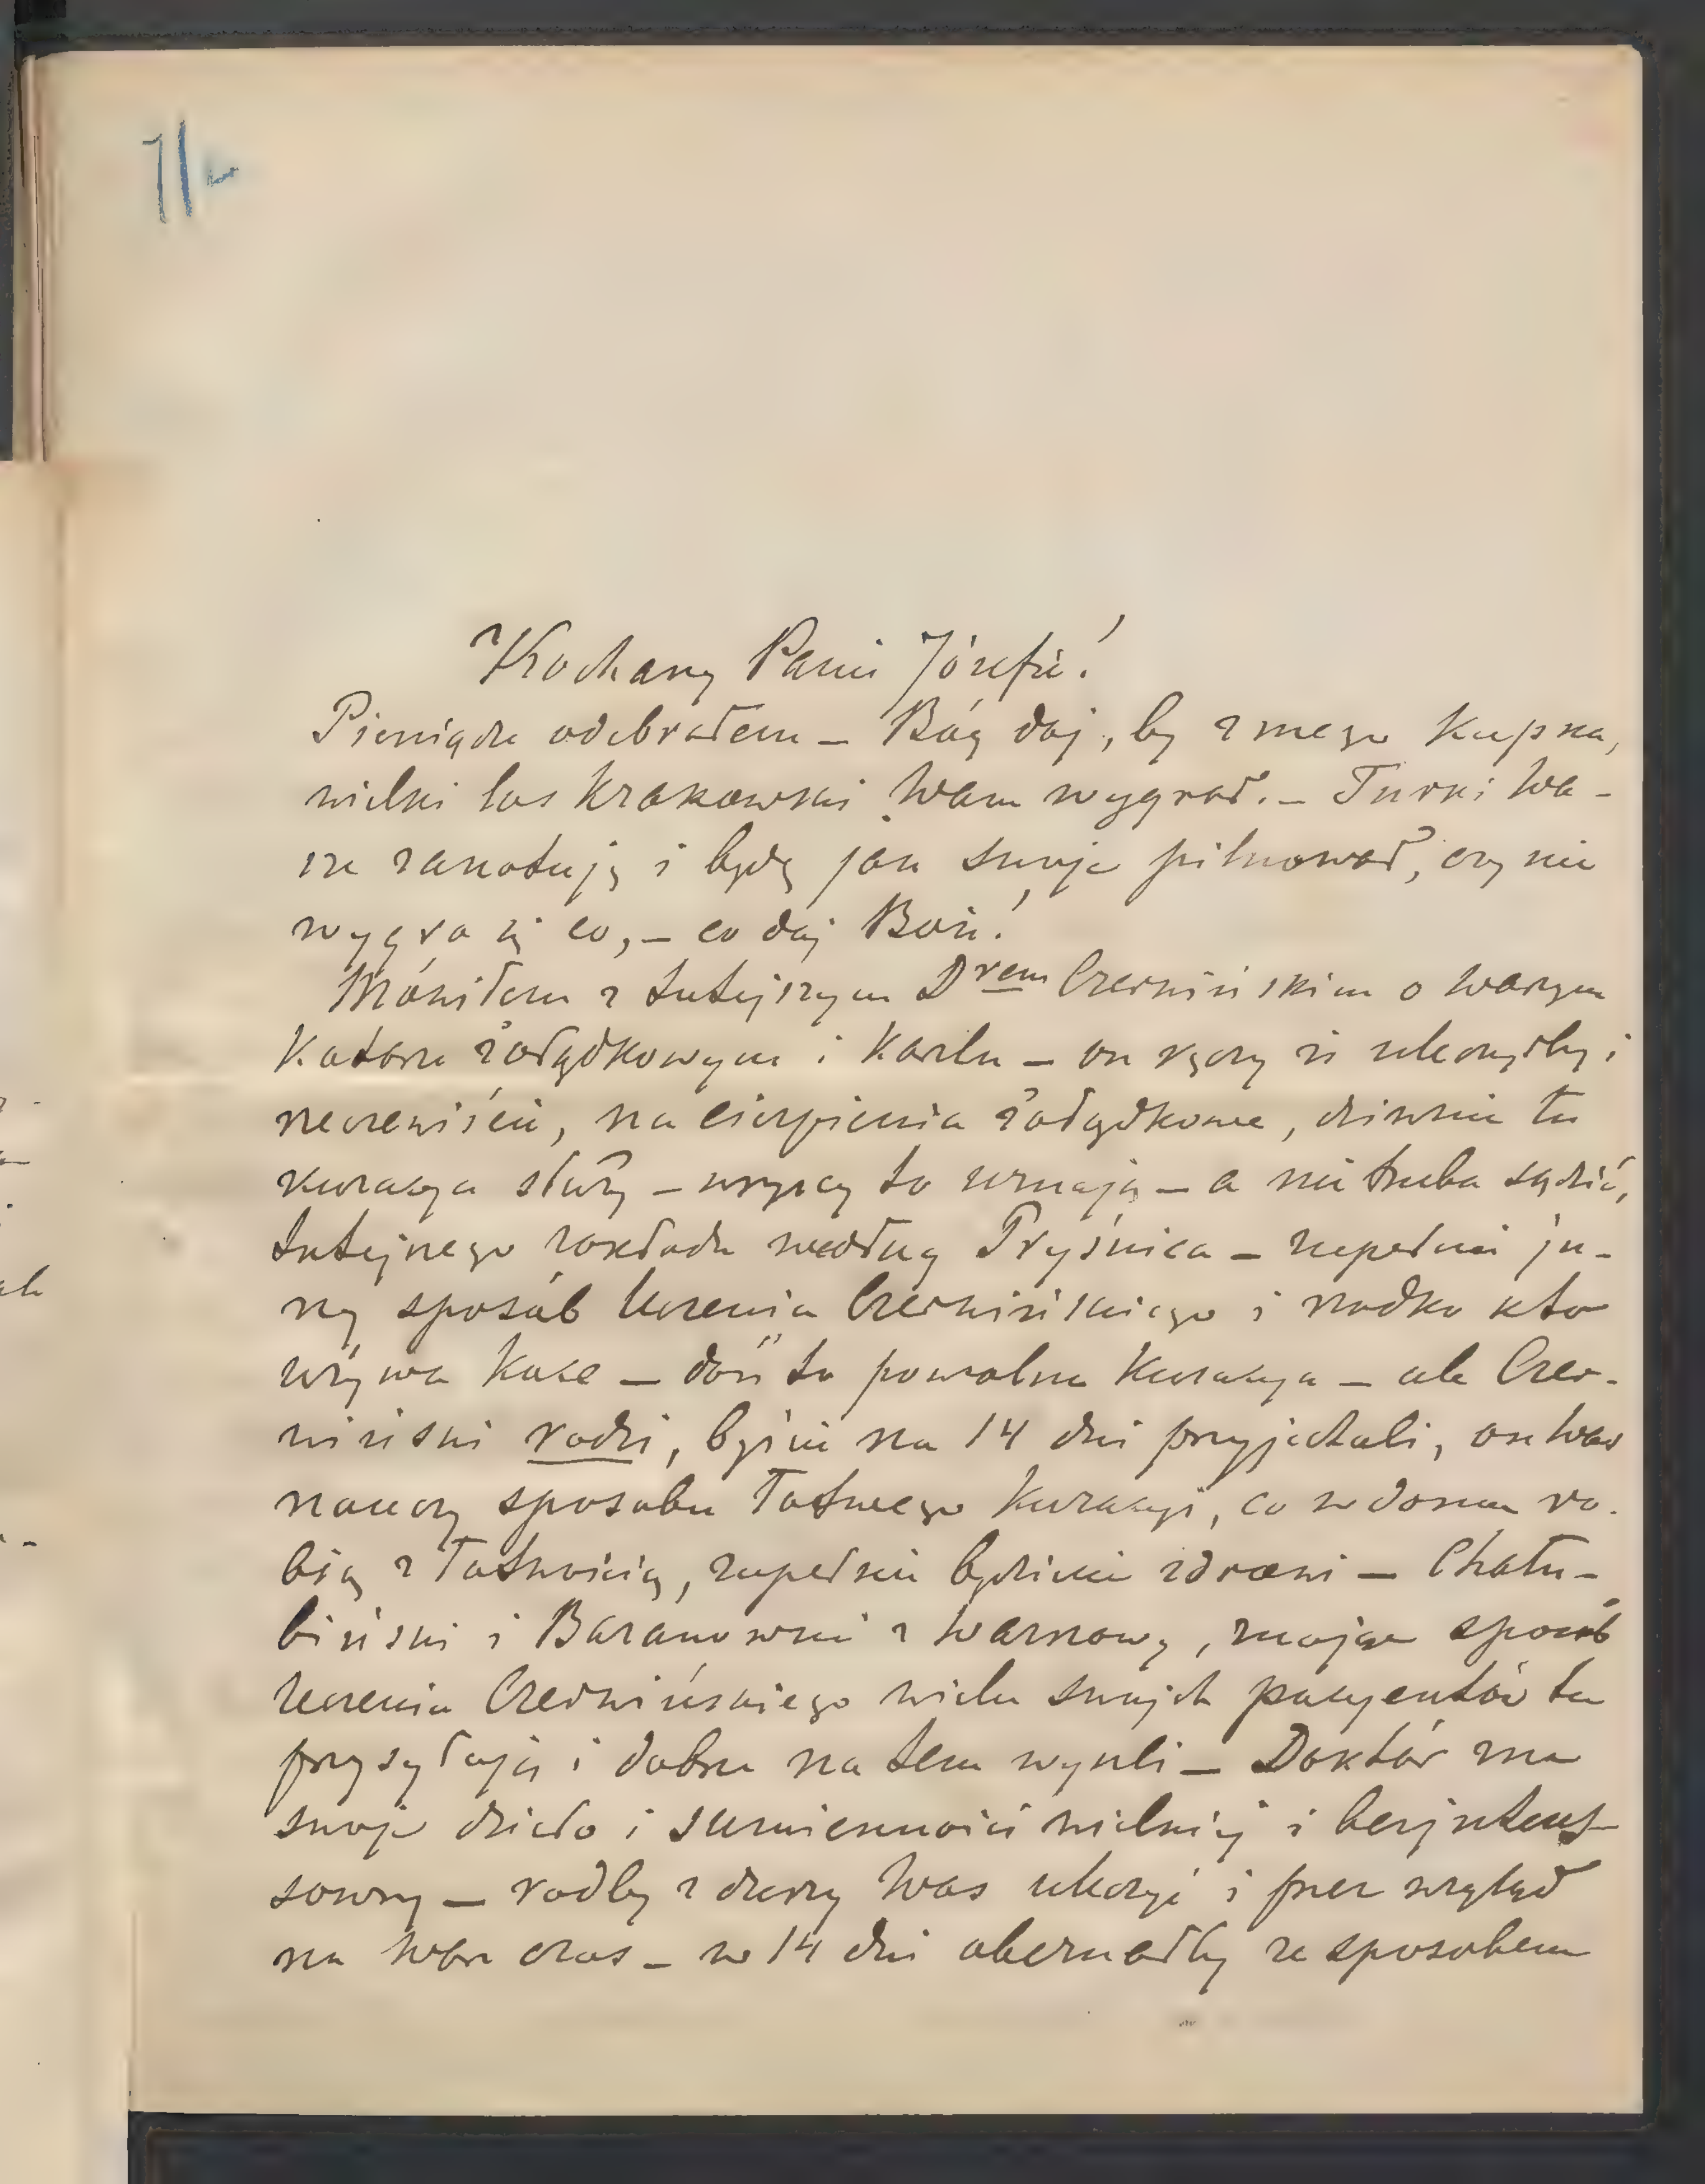 71
Kochany Panie Józefie!
Pieniądze odebrałem – Bóg daj, by z mego kupna,
wielki los Krakowski Wam wygrał. – Turki Wa-
sze zanotuję i będę jak swoje pilnował, czy nie
wygra się co, – co daj Boże!
Mówiłem z tutejszym Drem Czerwińskim o Waszym
Katarze żołądkowym i Kaszlu – on ręczy że uleczyłby i
rzeczewiście, na cierpienia żołądkowe, dziwnie tu
kuracya służy – wszyscy to uznają – a nie trzeba sądzić,
tutejszego zakładu według Pryśnica – zupełnie in-
ny sposób leczenia Czerwińskiego i rzadko kto
używa Koce – dość to powolna Kuracya – ale Czer-
wiński radzi, byście na 14 dni przyjechali, on Was
nauczy sposobu łatwego Kuracyi, co w domu ro-
bią z łatwością, zupełnie będziecie zdrowi – Chału-
biński i Baranowski z Warszawy, znając sposób
leczenia Czerwińskiego wielu swych pacyentów tu
przysyłają i dobrze na tem wyszli – Doktór zna
swoje dzieło i sumienności wielkiej i bezintere-
sowny – radby z duszy Was uleczyć i przez wzgląd
na Wasz czas – w 14 dni obeznałby ze sposobem